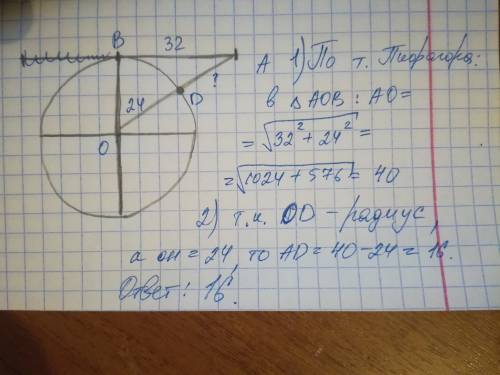 B 32
A
?
D
24
O
1) По т. Пифагора:
в △AOB: AO=
=√32²+24² =
=√1024+576 = 40
2) т.к. OD – радиус,
а он = 24, то AD = 40-24 = 16.
Ответ: 16.